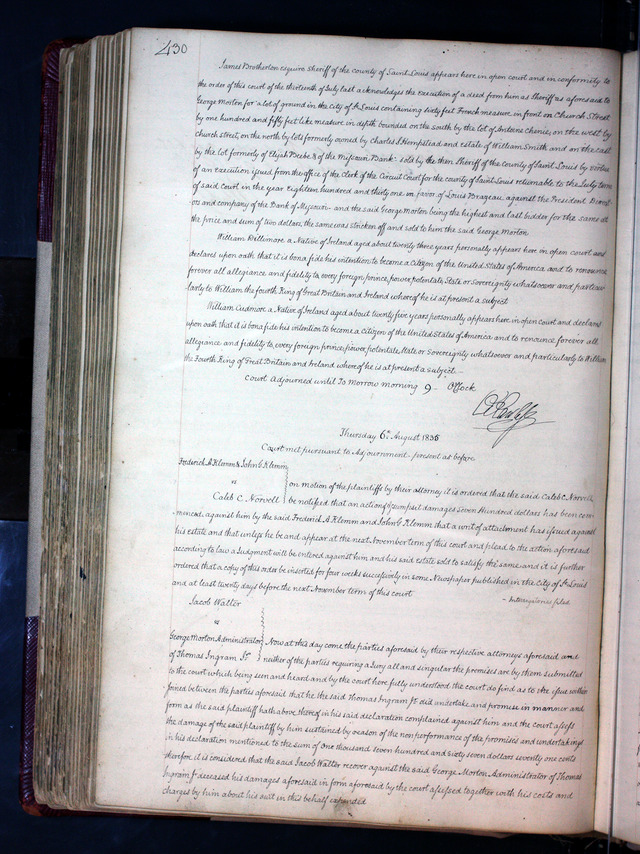 430
James Brotherton esquire Sheriff of the county of Saint Louis appears here in open court and in conformity to
the order of this court of the thirteenth of July last acknowledges the execution of a deed form him as Sheriff as aforesaid to
George Morton for a lot of ground in the City of St Louis containing sixty feet French measure in front on Church Street
by one hundred and fifty feet like measure in depth bounded on the south by the lot of Antoine Chenie, on the west by
church street, on the north by lots formerly owned by Charles Hempstead and estate of William Smith and on the east
by the lot formerly of Elijah Beebe & of the Missouri Bank sold by the then Sheriff of the county of Saint Louis by virtue
of an execution issued from the office of the Clerk of the Circuit Court for the county of Saint Louis returnable to the July Term
of said court in the year eighteen hundred and thirty one in favor of Louis Brazeau against the President Direct-
ors and company of the Bank of Missouri – and the said George Morton being the highest and last bidder for the same at
the price and sum of two dollars, the same was stricken off and sold to him the said George Morton
William Dillimore a Native of Ireland aged about twenty three years personally appears here in open court and
declares upon oath that it is bona fide his intention to become a Citizen of the United States of America and to renounce
forever all allegiance and fidelity to every foreign prince, power, potentate, State or Sovereignty whatsoever and particu-
larly to William the fourth King of Great Britain and Ireland where of he is at present a subject
William Cudmore a Native of Ireland aged about twenty five years personally appears here in open court and declares
upon oath that it is bona fide his intention to become a Citizen of the United States of America and to renounce forever all
allegiance and fidelity to every foreign prince, power, potentate, State or Sovereignty whatsoever and particularly to William
the Fourth King of Great Britain and Ireland where of he is at present a subject
Court Adjourned until To Morrow morning 9 – O'Clock
Thursday 6th August 1835
Court met pursuant to Adjournment – present as before
Frederick A Klemm & John G Klemm
vs
Caleb C Norvell
on motion of the plaintiffs by their attorney it is ordered that the said Caleb C. Norvell
be notified that an action of assumpsit damages Seven Hundred dollars has been com-
menced, against him by the said Frederick A Klemm and John G Klemm that a writ of attachment has issued against
his estate and that unless he be and appear at the next November term of this court and plead to the action aforesaid
according to law a Judgment will be entered against him and his said estate sold to satisfy the same and it is further
ordered that a copy of this order be inserted for four weeks successively in some Newspaper published in the City of St Louis
and at least twenty days before the next November term of this court
– Interrogatories filed
Jacob Walter
vs
George Morton Administrator
of Thomas Ingram Jr
Now at this day come the parties aforesaid by their respective attorneys aforesaid and
neither of the parties requiring a Jury all and singular the premises are by them submitted
to the court which being seen and heard and by the court here fully understood the court do find as to the issue within
joined between the parties aforesaid that he the said Thomas Ingram Jr did undertake and promise in manner and
form as the said plaintiff hath above thereof in his said declaration complained against him and the court assess
the damage of the said plaintiff by him sustained by reason of the non performance of the promises and undertakings
in his declaration mentioned to the sum of one thousand seven hundred and sixty seven dollars seventy one cents
therefore it is considered that the said Jacob Walter recover against the said George Morton Administrator of Thomas
Ingram Jr deceased his damages aforesaid in form aforesaid by the court assessed together with his costs and
charges by him about his suit in this behalf expended